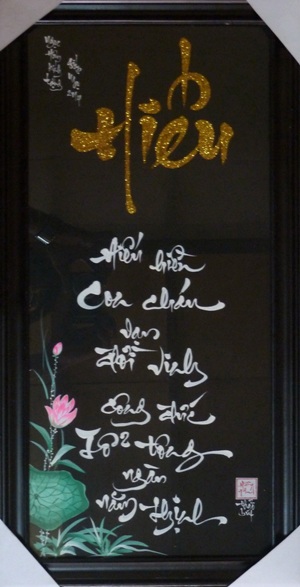 Hiếu
Hiếu hiền
Con cháu
vạn
đời vinh
công đức
Tổ tông
ngàn
năm thịnh